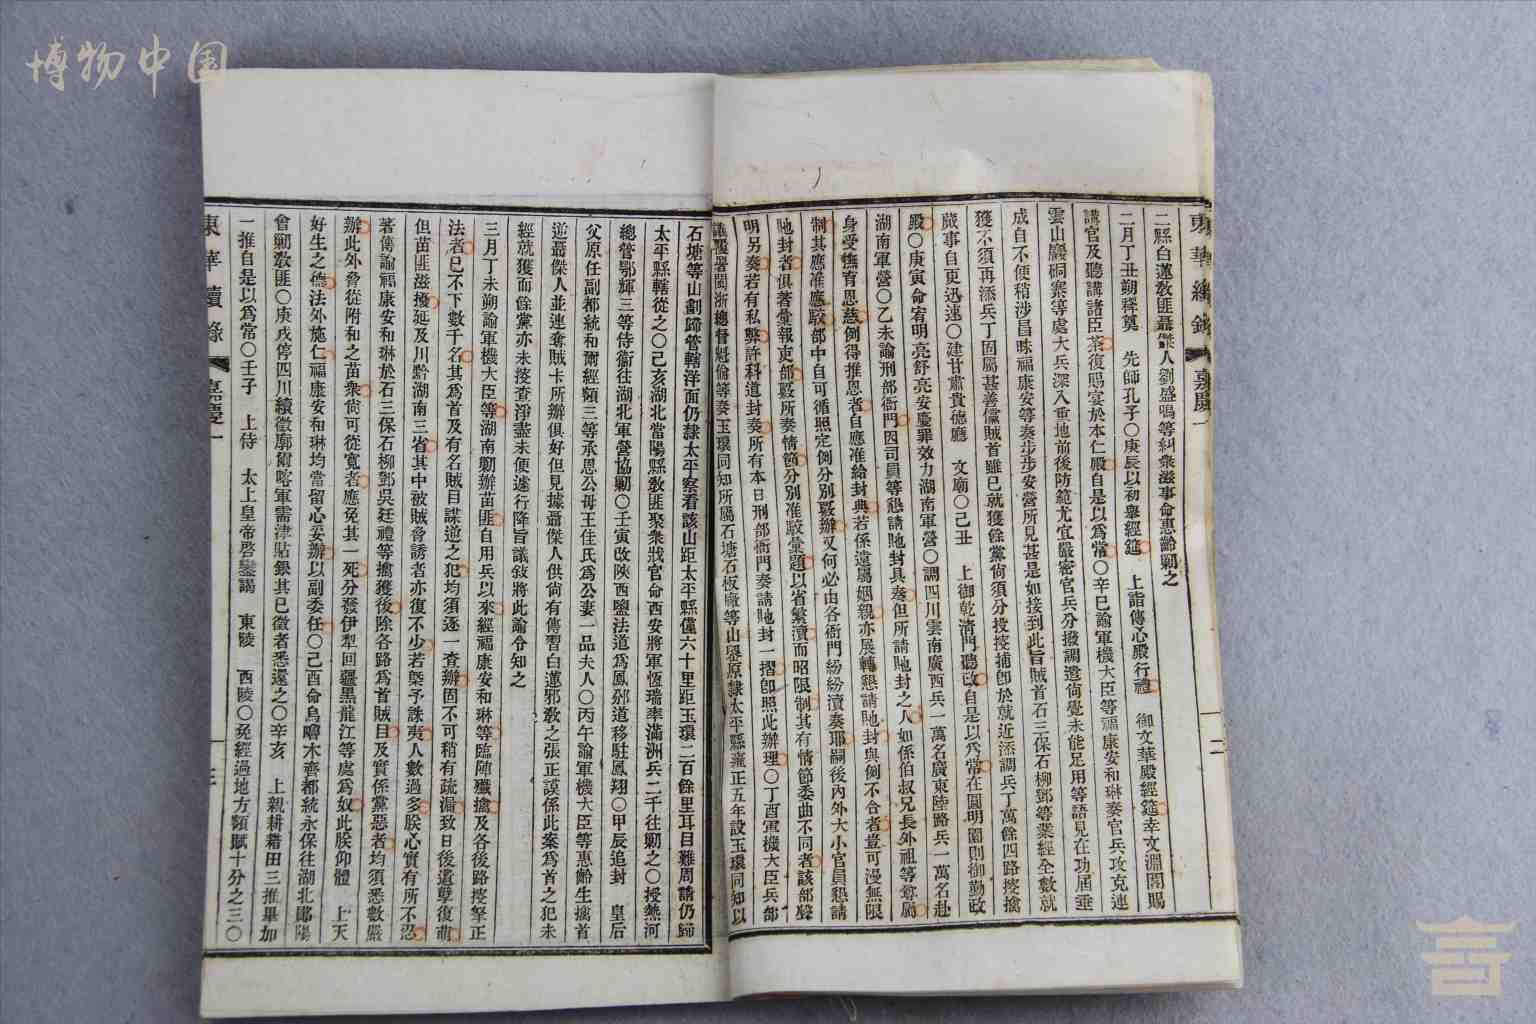 博物中国
東華續錄 嘉慶一 二
二縣白蓮敎匪聶傑人劉盛鳴等糾衆滋事命惠齡勦之
二月丁丑朔釋奠 先師孔子〇庚辰以初舉經筵 上詣傳心殿行禮 御文華殿經筵幸文淵閣賜
講官及聽講諸臣茶復賜宴於本仁殿自是以爲常〇辛巳諭軍機大臣等福康安和琳奏官兵攻克連
雲山巖硐寨等處大兵深入重地前後防範尤宜嚴密官兵分撥調遣尙覺未能足用等語見在功屆垂
成自不便稍涉昌昧福康安等奏步步安營所見甚是如接到此旨賊首石三保石柳鄧等業經全數就
獲不須再添兵丁固屬甚善儻賊首雖已就獲餘黨尙須分投搜捕卽於就近添調兵丁萬餘四路搜擒
蕆事自更迅速〇建甘肅貴德廳 文廟〇己丑 上御乾淸門聽政自是以爲常在圓明園則御勤政
殿〇庚寅命宥明亮舒亮安慶罪效力湖南軍營〇調四川雲南廣西兵一萬名廣東陸路兵一萬名赴
湖南軍營〇乙未諭刑部衙門因司員等懇請貤封具奏但所請貤封之人如係伯叔兄長外祖等尊屬
身受撫育恩慈例得推恩者自應准給封典若係遠屬姻親亦展轉懇請貤封與例不合者豈可漫無限
制其應准應駁部中自可循照定例分別覈辦又何必由各衙門紛紛瀆奏耶嗣後內外大小官員懇請
貤封者俱著彙報吏部覈所奏情節分別准駁彙題以省繁瀆而昭限制其有情節委曲不同者該部聲
明另奏若有私弊許科道封奏所有本日刑部衙門奏請貤封一摺卽照此辦理〇丁酉軍機大臣兵部
議覆署閩浙總督魁倫等奏玉環同知所屬石塘石板廠等山嶴原隸太平縣雍正五年設玉環同知以
石塘等山劃歸管轄洋面仍隸太平察看該山距太平縣僅六十里距玉環二百餘里耳目難周請仍歸
太平縣轄從之〇己亥湖北當陽縣敎匪聚衆戕官命西安將軍恆瑞率滿洲兵二千往勦之〇授熱河
總管鄂輝三等侍衞往湖北軍營協勦〇壬寅改陝西鹽法道爲鳳邠道移駐鳳翔〇甲辰追封 皇后
父原任副都統和爾經額三等承恩公母王佳氏爲公妻一品夫人〇丙午諭軍機大臣等惠齡生擒首
逆聶傑人並連奪賊卡所辦俱好但見據聶傑人供尙有傳習白蓮邪敎之張正謨係此案爲首之犯未
經就獲而餘黨亦未搜查淨盡未便遽行降旨議敘將此諭令知之
三月丁未朔諭軍機大臣等湖南勦辦苗匪自用兵以來經福康安和琳等臨陣殲擒及各後路搜拏正
法者已不下數千名其爲首及有名賊目謀逆之犯均須逐一查辦固不可稍有疏漏致日後遺孽復萌
但苗匪滋擾延及川黔湖南三省其中被賊脅誘者亦復不少若槩予誅夷人數過多朕心實有所不忍
著傳諭福康安和琳於石三保石柳鄧吳廷禮等擒獲後除各路爲首賊目及實係黨惡者均須悉數嚴
辦此外脅從附和之苗衆尙可從寬者應免其一死分發伊犁回疆黑龍江等處爲奴此朕仰體 上天
好生之德法外施仁福康安和琳均當留心妥辦以副委任〇己酉命烏嚕木齊都統永保往湖北鄖陽
會勦敎匪〇庚戌停四川續徵廓爾喀軍需津貼銀其已徵者悉還之〇辛亥 上親耕耤田三推畢加
一推自是以爲常〇壬子 上侍 太上皇帝啓鑾謁 東陵 西陵〇免經過地方額賦十分之三〇
東華續錄 嘉慶一 三